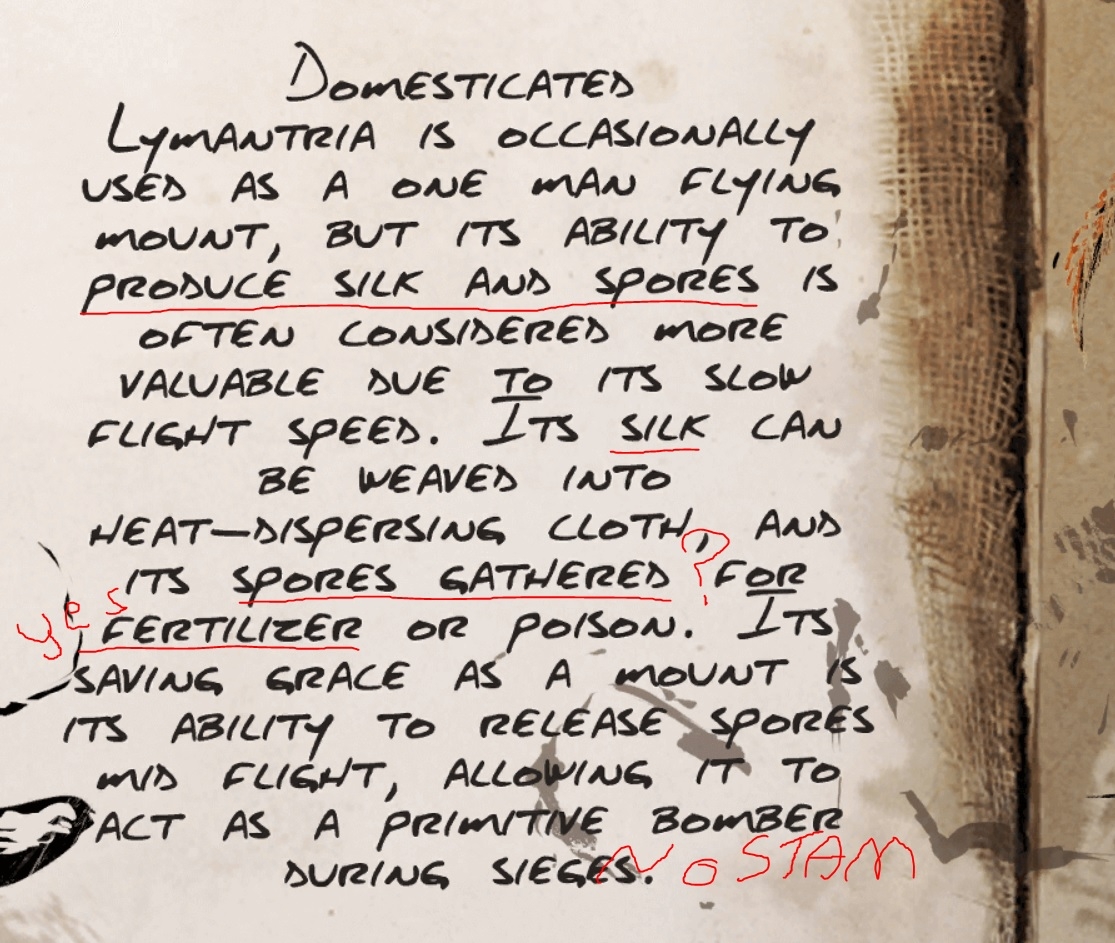 DOMESTICATED
LYMANTRIA IS OCCASIONALLY
USED AS A ONE MAN FLYING
MOUNT, BUT ITS ABILITY TO
PRODUCE SILK AND SPORES IS
OFTEN CONSIDERED MORE
VALUABLE DUE TO ITS SLOW
FLIGHT SPEED. ITS SILK CAN
BE WEAVED INTO
HEAT-DISPERSING CLOTH, AND
ITS SPORES GATHERED ? FOR
yes FERTILIZER OR POISON. ITS
SAVING GRACE AS A MOUNT IS
ITS ABILITY TO RELEASE SPORES
MID FLIGHT, ALLOWING IT TO
ACT AS A PRIMITIVE BOMBER
DURING SIEGES. NO STAM